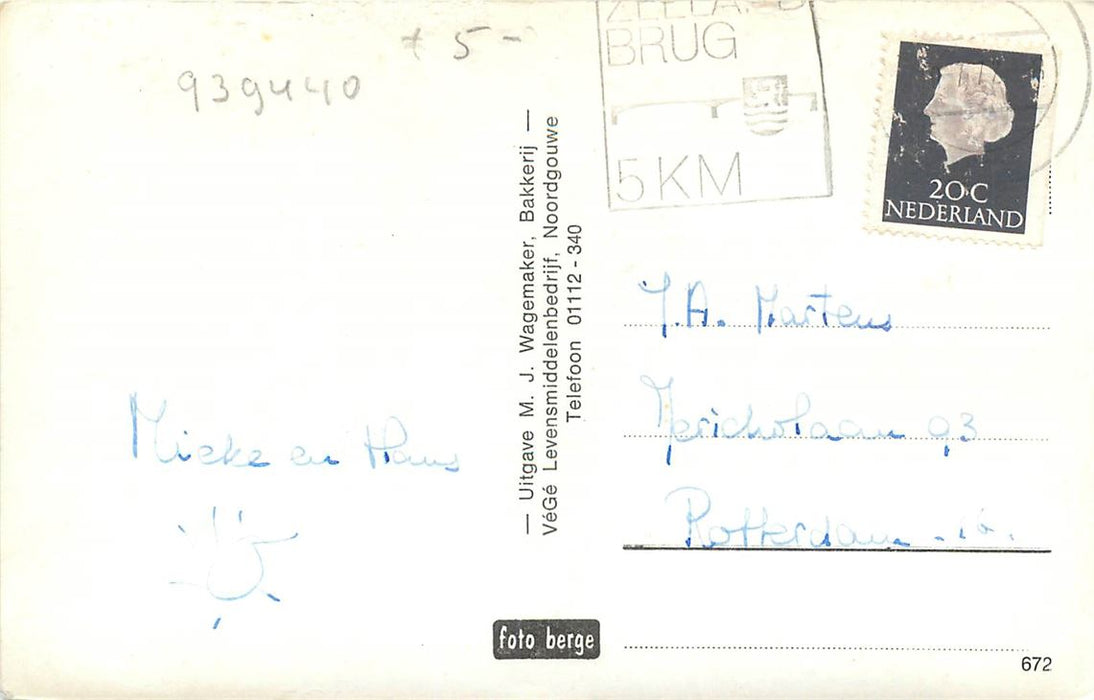 + 5 -
939440
ZEELAND
BRUG
5 KM
20 C
NEDERLAND
— Uitgave M. J. Wagemaker, Bakkerij —
VéGé Levensmiddelenbedrijf, Noordgouwe
Telefoon 01112 - 340
Mieke en Hans
J.A. Martens
Jericholaan 93
Rotterdam
foto berge
672